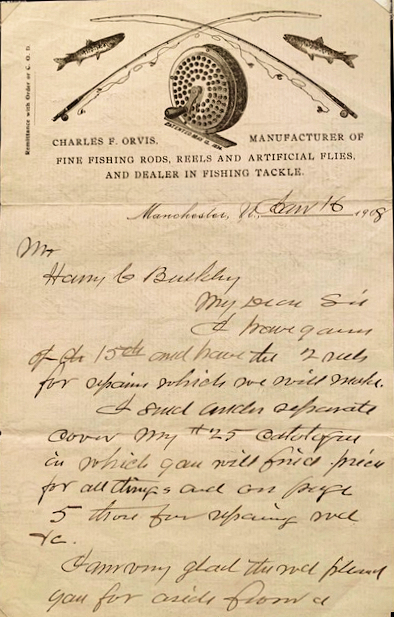 Remittance with Order or C. O. D.
PATENTED MAY 12, 1874
CHARLES F. ORVIS, MANUFACTURER OF
FINE FISHING RODS, REELS AND ARTIFICIAL FLIES,
AND DEALER IN FISHING TACKLE.
Manchester, Vt., Jan 16 1908
Mr
Harry C Buckley
My Dear Sir
I have yours
of the 15th and have the 2 reels
for repairs which we will make.
I send under separate
cover my #25 catalogue
in which you will find prices
for all things and on page
5 those for repairing rod
&c.
I am very glad the rod pleased
you for aside from a